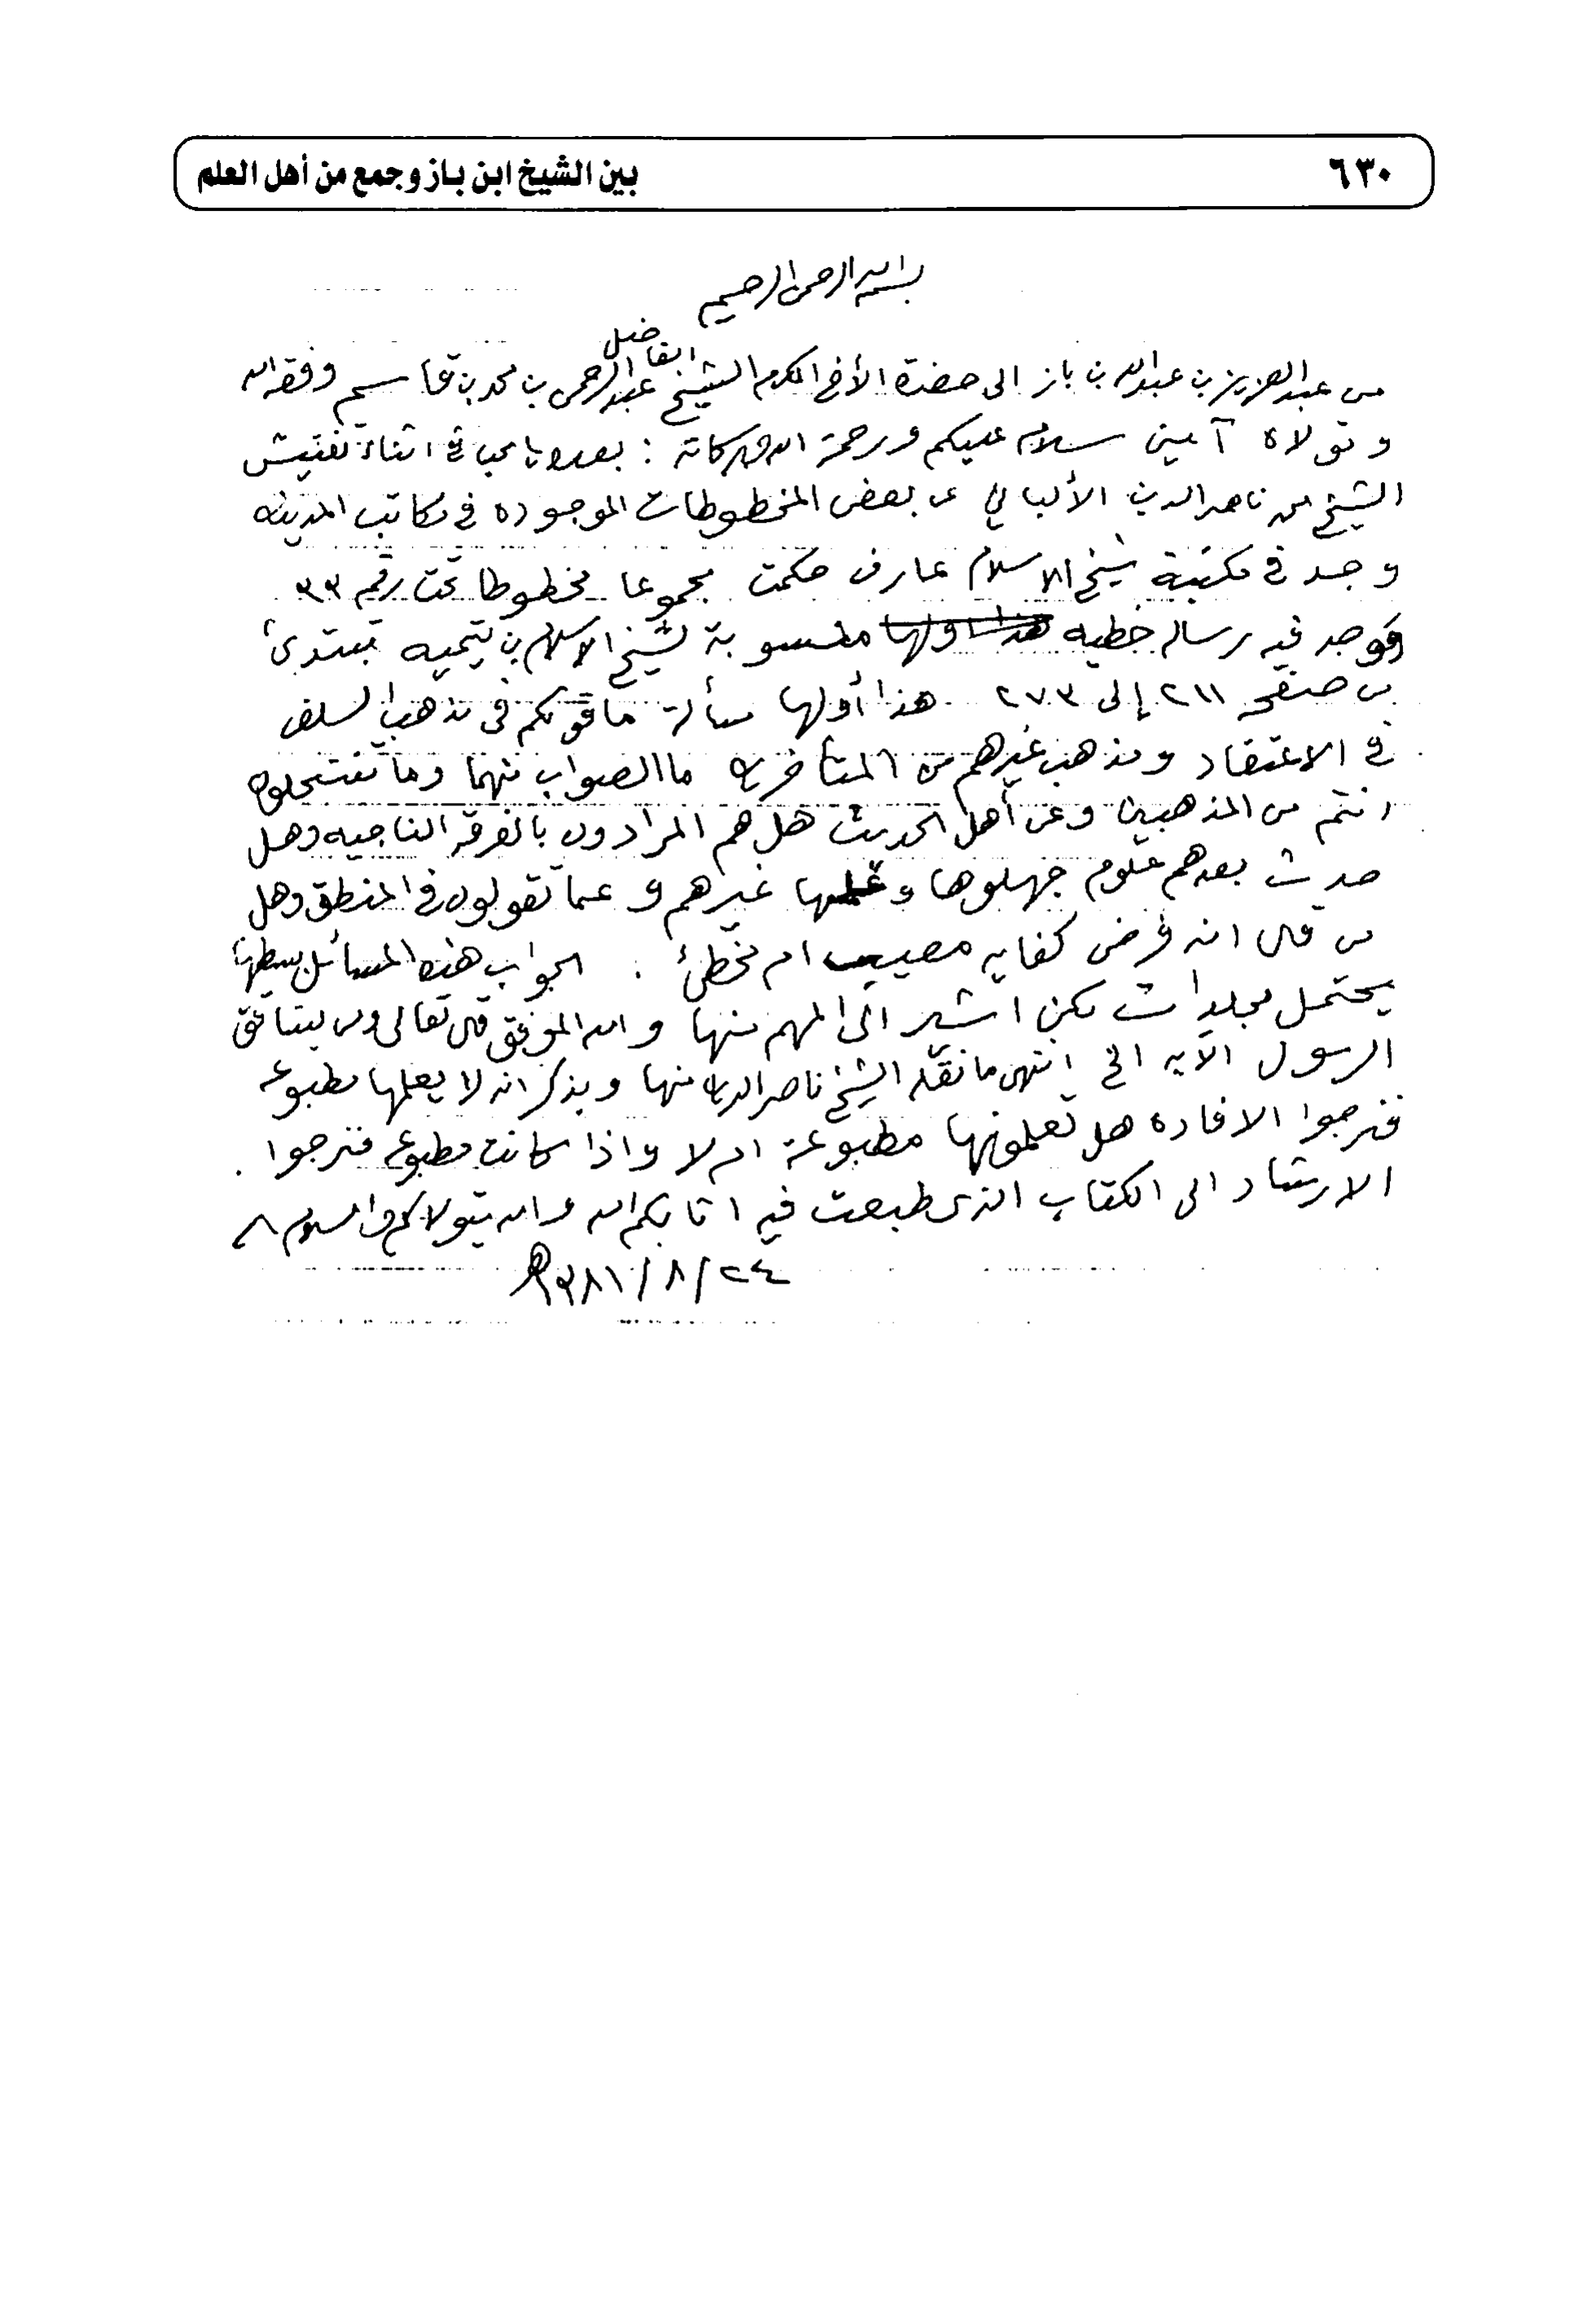 ٦٣٠
بين الشيخ ابن باز وجمع من أهل العلم
بسم الله الرحمن الرحيم
من عبدالعزيز بن عبدالله بن باز الى حضرة الأخ المكرم الشيخ الفاضل عبدالرحمن بن محمد بن قاسم وفقه الله
وتولاه آمين سلام عليكم ورحمة الله وبركاته : بعده يا محب في اثناء تفتيش
الشيخ محمد ناصر الدين الألباني عن بعض المخطوطات الموجوده في مكاتب المدينه
وجد في مكتبة شيخ الاسلام عارف حكمت مجموعا مخطوطا تحت رقم ٣٣
فوجد فيه رساله خطيه هذا اولها منسوبة لشيخ الاسلام بن تيميه تبتدئ
من صفحه ٢١١ إلى ٢٧٣ هذا أولها مسألة ما قولكم في مذهب السلف
في الاعتقاد ومذهب غيرهم من المتأخرين ما الصواب منهما وما تنتحلونه
انتم من المذهبين وعن أهل الحديث هل هم المرادون بالفرقه الناجيه وهل
حدث بعدهم علوم جهلوها وعلمها غيرهم وعما تقولون في المنطق وهل
من قال انه فرض كفايه مصيب ام مخطئ : الجواب هذه المسائل بسطها
يحتمل مجلدات لكن اشير الى المهم منها والله الموفق قال تعالى ومن يشاقق
الرسول الآيه الخ انتهى ما نقله الشيخ ناصر الدين منها ويذكر انه لا يعلمها مطبوعه
فنرجوا الافاده هل تعلمونها مطبوعة ام لا واذا كانت مطبوعه فنرجوا .
الارشاد الى الكتاب الذى طبعت فيه اثابكم الله والله يتولاكم والسلام
٢٤/٨/١٣٨١هـ